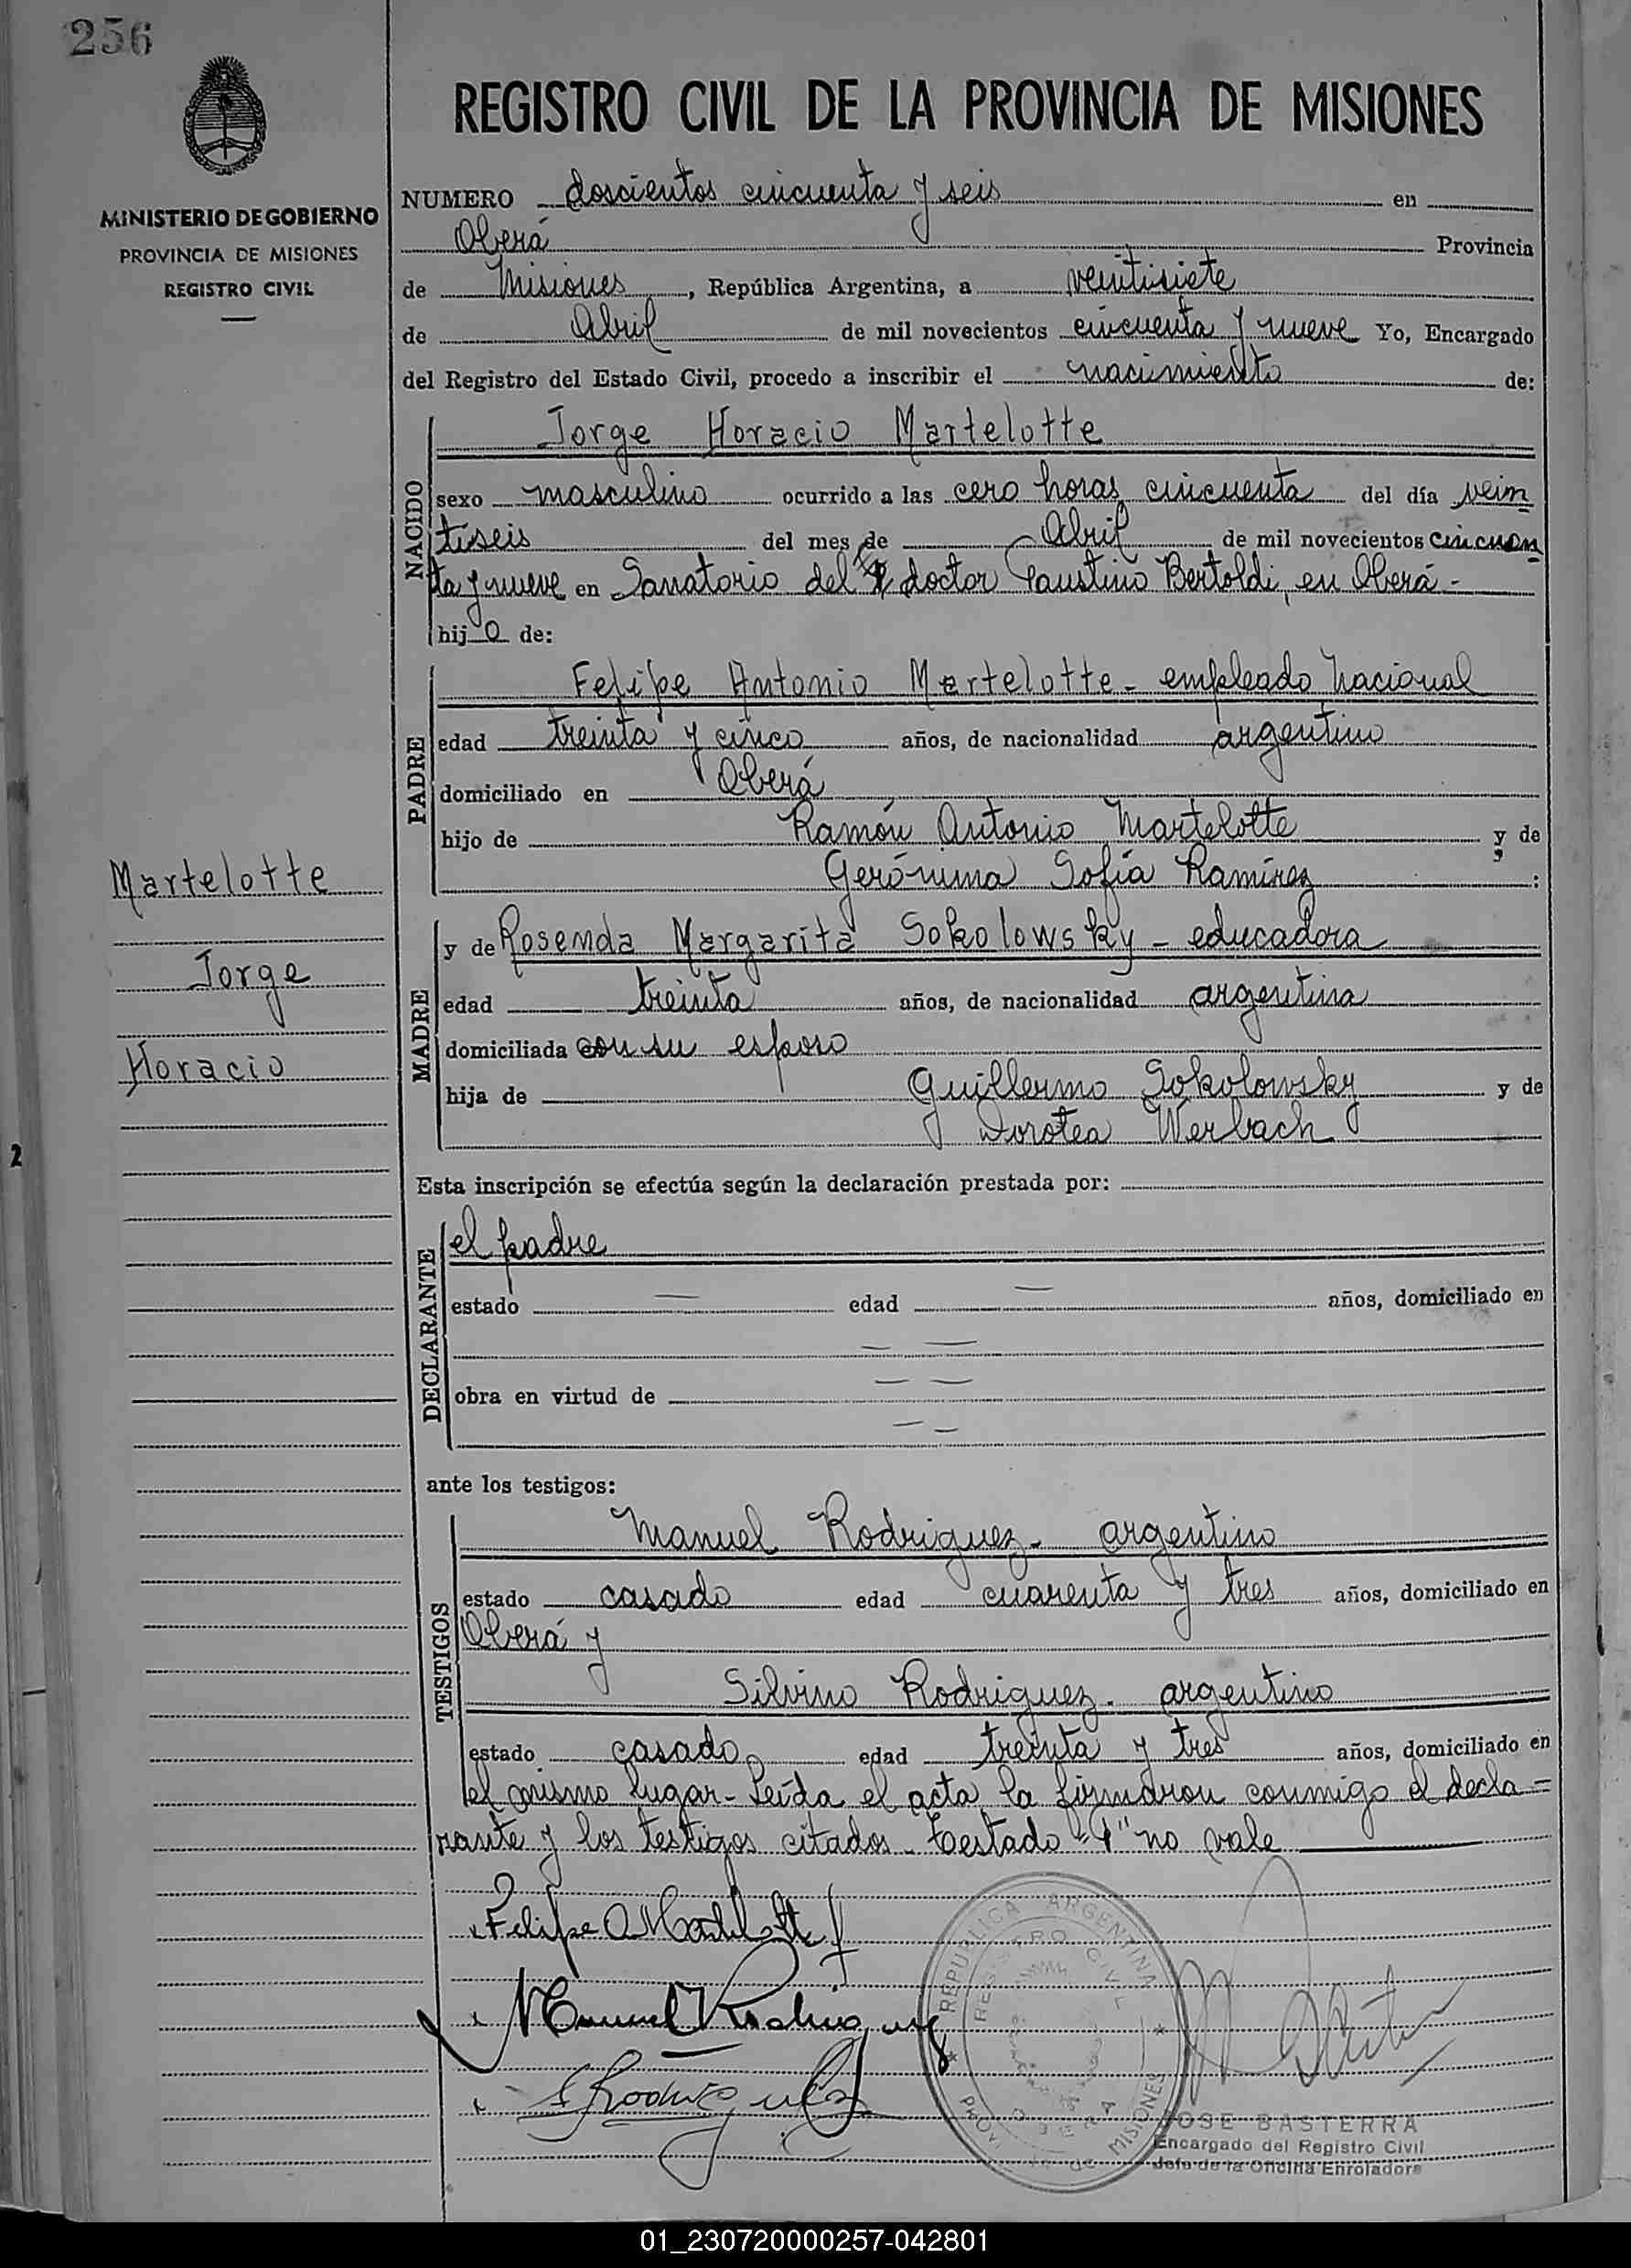 256
MINISTERIO DE GOBIERNO
PROVINCIA DE MISIONES
REGISTRO CIVIL
Martelotte
Jorge
Horacio
2
REGISTRO CIVIL DE LA PROVINCIA DE MISIONES
NUMERO doscientos cincuenta y seis en
Oberá Provincia
de Misiones, República Argentina, a veintisiete
de Abril de mil novecientos cincuenta y nueve Yo, Encargado
del Registro del Estado Civil, procedo a inscribir el nacimiento de:
NACIDO
Jorge Horacio Martelotte
sexo masculino ocurrido a las cero horas cincuenta del día vein
tiseis del mes de Abril de mil novecientos cincuen
ta y nueve en Sanatorio del doctor Faustino Bertoldi, en Oberá-
hijo de:
PADRE
Felipe Antonio Martelotte - empleado nacional
edad treinta y cinco años, de nacionalidad argentino
domiciliado en Oberá
hijo de Ramón Antonio Martelotte y de
Gerónima Sofía Ramírez :
MADRE
y de Rosenda Margarita Sokolowsky - educadora
edad treinta años, de nacionalidad argentina
domiciliada con su esposo
hija de Guillermo Sokolowsky y de
Dorotea Werbach
Esta inscripción se efectúa según la declaración prestada por:
DECLARANTE
el padre
estado — edad — años, domiciliado en
— —
obra en virtud de — —
— —
ante los testigos:
TESTIGOS
Manuel Rodriguez- argentino
estado casado edad cuarenta y tres años, domiciliado en
Oberá y
Silvino Rodriguez- argentino
estado casado edad treinta y tres años, domiciliado en
el mismo lugar- Leída el acta la firmaron conmigo el decla=
rante y los testigos citados- Testado "y" no vale
Felipe A Martelotte
Manuel Rodriguez
S Rodriguez
REPUBLICA ARGENTINA
REGISTRO CIVIL
OBERA
PROVINCIA DE MISIONES
JOSE BASTERRA
Encargado del Registro Civil
Jefe de la Oficina Enroladora
01_230720000257-042801